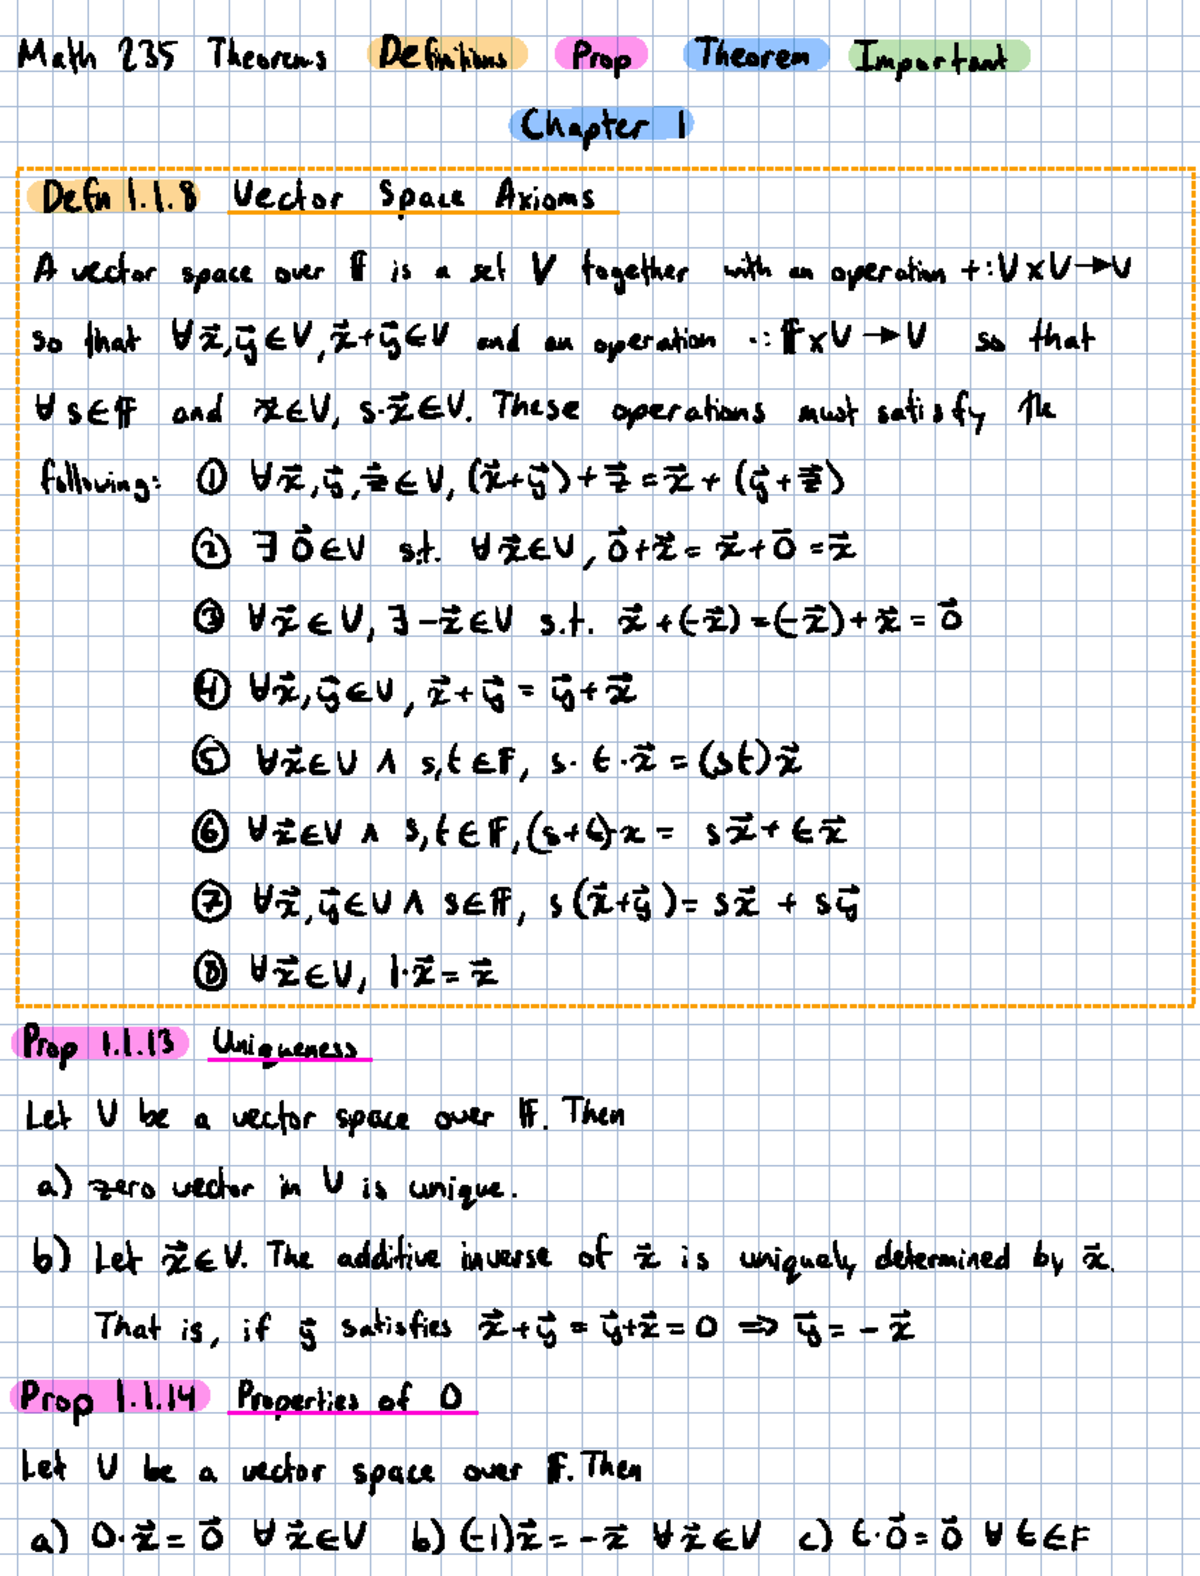 Math 235 Theorems Definitions Prop Theorem Important
Chapter 1
Defn 1.1.8 Vector Space Axioms
A vector space over 𝔽 is a set V together with an operation +: V×V→V
so that ∀x⃗,y⃗∈V, x⃗+y⃗∈V and an operation ·: 𝔽×V→V so that
∀s∈𝔽 and x⃗∈V, s·x⃗∈V. These operations must satisfy the
following: ① ∀x⃗,y⃗,z⃗∈V, (x⃗+y⃗)+z⃗=x⃗+(y⃗+z⃗)
② ∃0⃗∈V s.t. ∀x⃗∈V, 0⃗+x⃗=x⃗+0⃗=x⃗
③ ∀x⃗∈V, ∃-x⃗∈V s.t. x⃗+(-x⃗)=(-x⃗)+x⃗=0⃗
④ ∀x⃗,y⃗∈V, x⃗+y⃗=y⃗+x⃗
⑤ ∀x⃗∈V ∧ s,t∈𝔽, s·t·x⃗=(st)x⃗
⑥ ∀x⃗∈V ∧ s,t∈𝔽, (s+t)·x= sx⃗+tx⃗
⑦ ∀x⃗,y⃗∈V ∧ s∈𝔽, s(x⃗+y⃗)=sx⃗+sy⃗
⑧ ∀x⃗∈V, 1·x⃗=x⃗
Prop 1.1.13 Uniqueness
Let V be a vector space over 𝔽. Then
a) zero vector in V is unique.
b) Let x⃗∈V. The additive inverse of x⃗ is uniquely determined by x⃗.
That is, if y⃗ satisfies x⃗+y⃗=y⃗+x⃗=0 ⟹ y⃗=-x⃗
Prop 1.1.14 Properties of 0
Let V be a vector space over 𝔽. Then
a) 0·x⃗=0⃗ ∀x⃗∈V b) (-1)x⃗=-x⃗ ∀x⃗∈V c) t·0⃗=0⃗ ∀t∈F